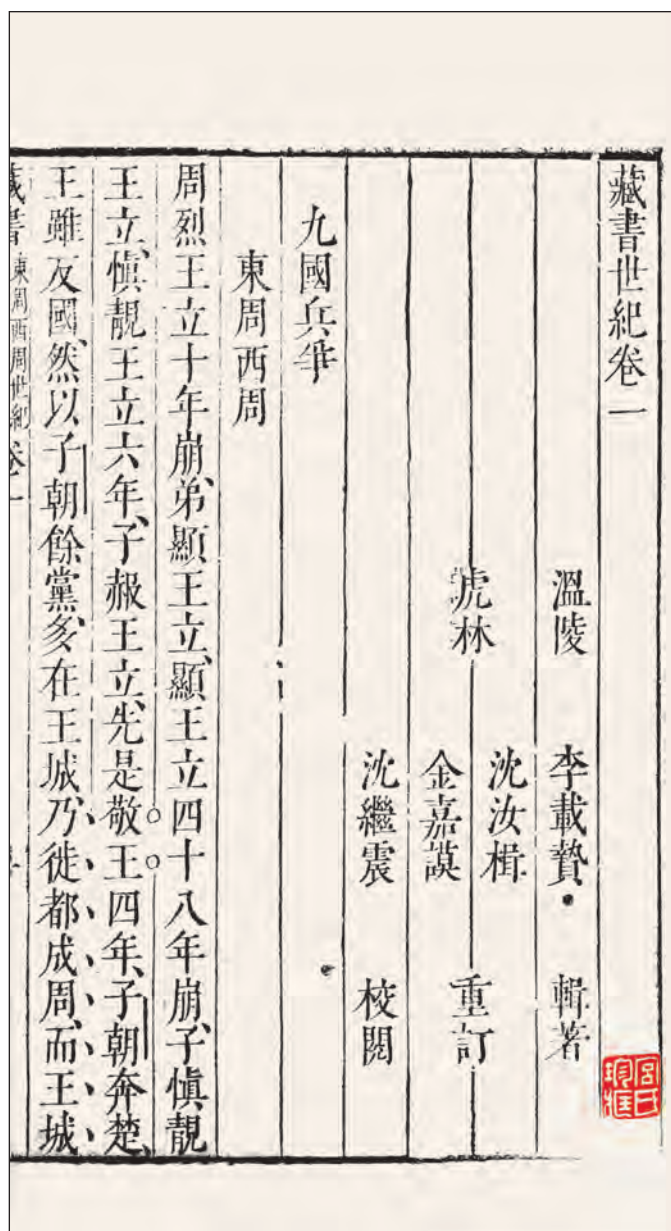 藏書世紀卷一
溫陵 李載贄 輯著
沈汝楫
虎林 重訂
金嘉謨
沈繼震 校閱
九國兵爭
東周西周
周烈王立十年崩、弟顯王立、顯王立四十八年崩、子慎靚
王立、慎靚王立六年、子赧王立、先是敬王四年、子朝奔楚、
王雖反國、然以子朝餘黨、多在王城、乃徙都成周、而王城
藏書 東周西周世紀 卷一